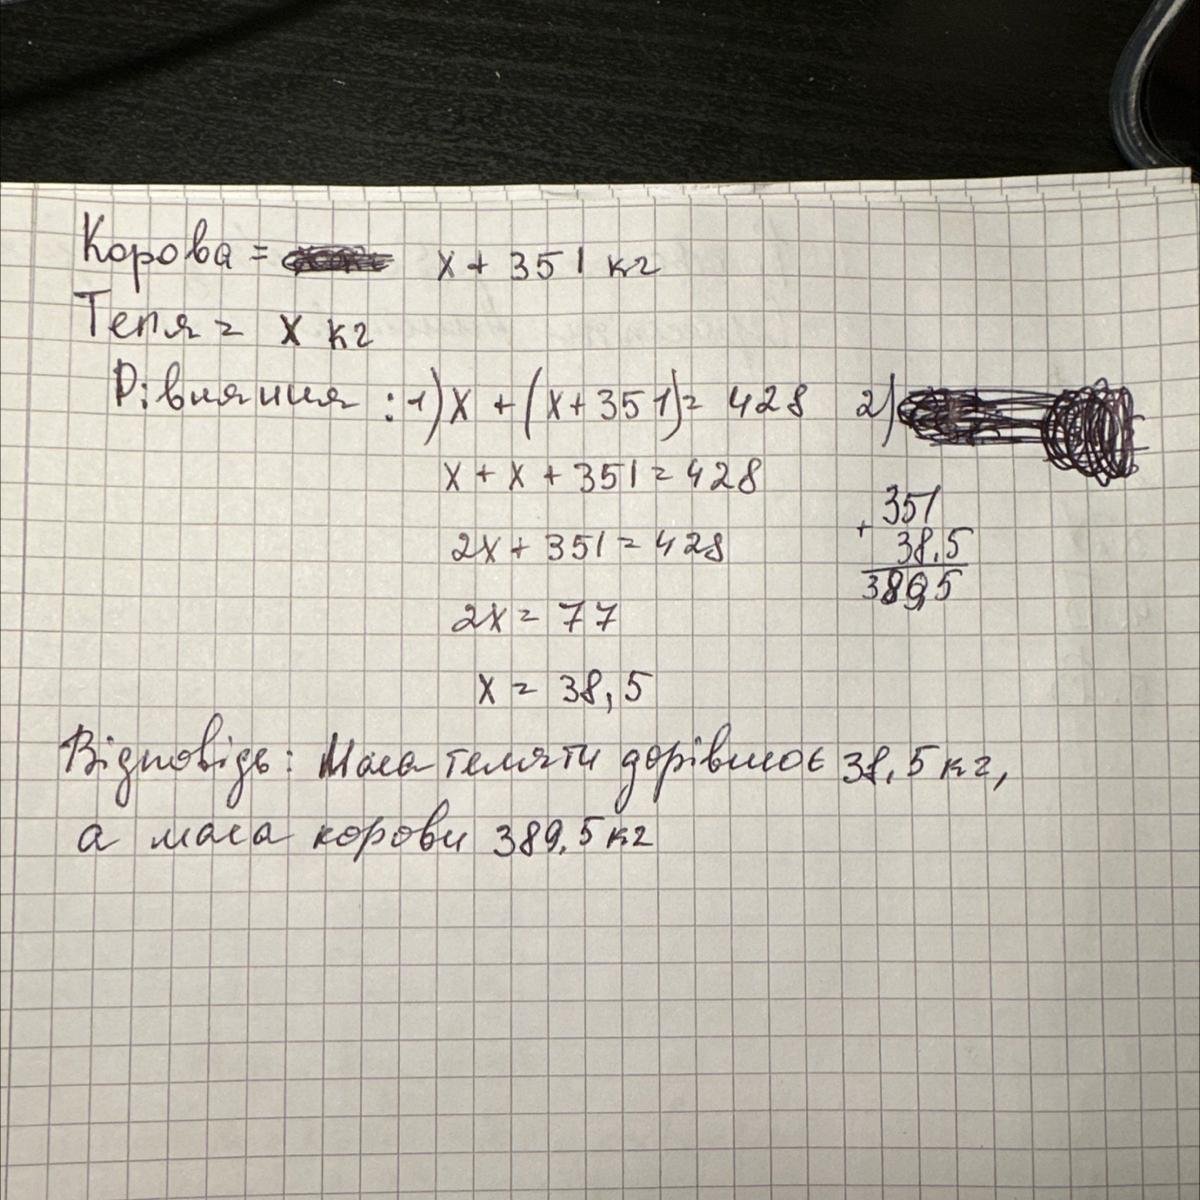 Корова = x + 351 кг
Теля = x кг
Рівняння : 1) x + (x + 351) = 428 2)
x + x + 351 = 428
2x + 351 = 428
2x = 77
x = 38,5
351
+ 38,5
389,5
Відповідь: Маса теляти дорівнює 38,5 кг,
а маса корови 389,5 кг